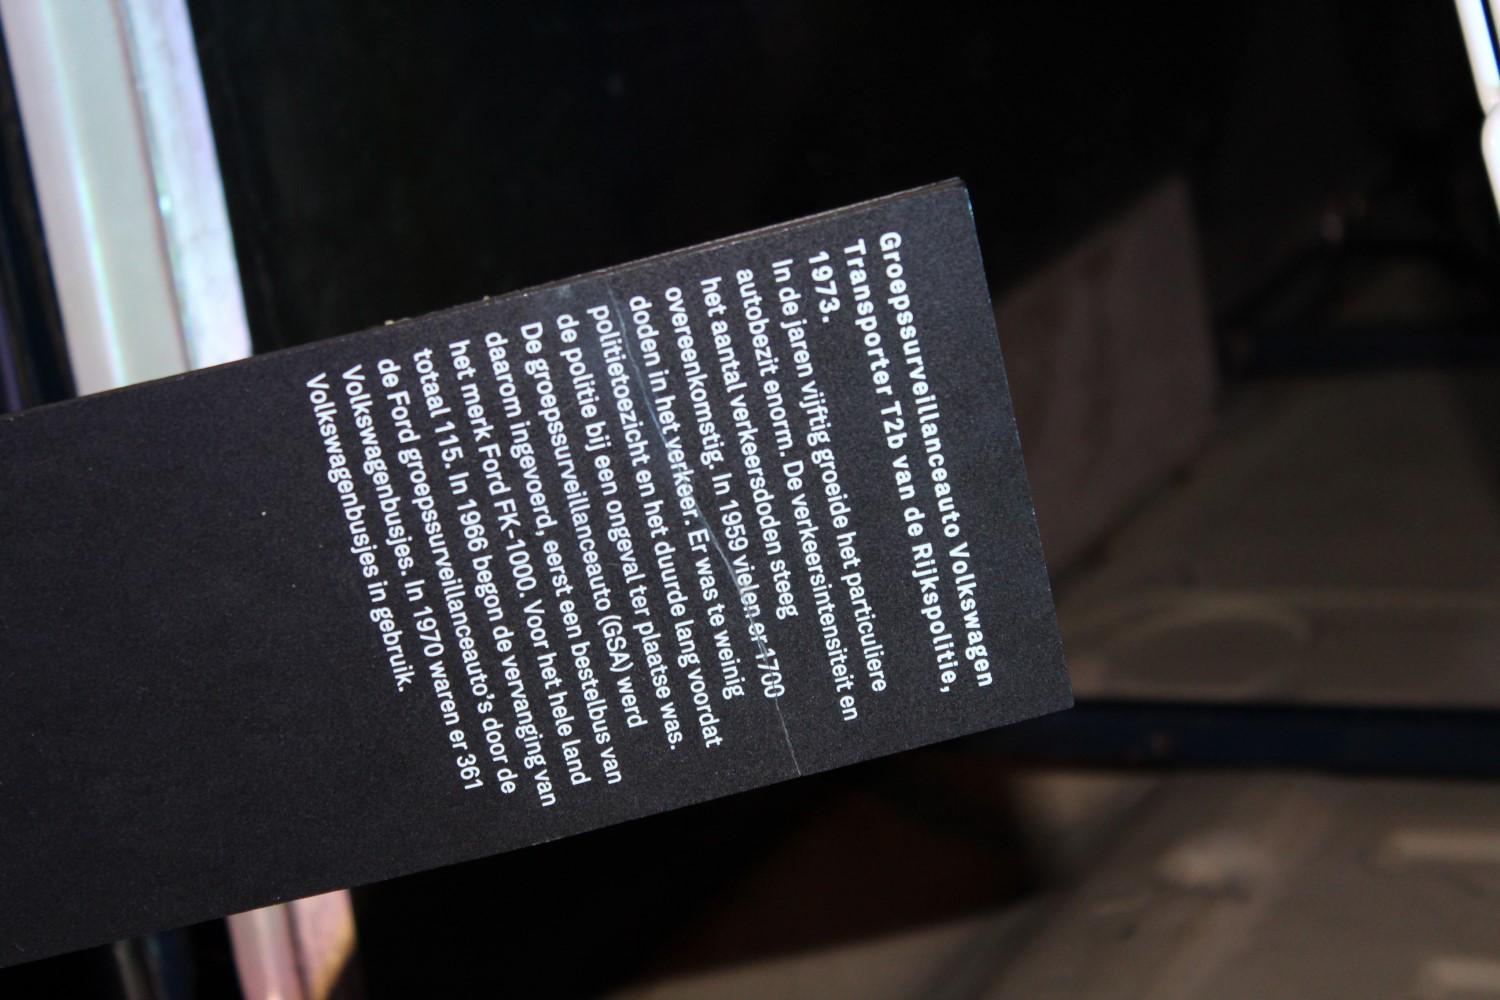 Groepssurveillanceauto Volkswagen
Transporter T2b van de Rijkspolitie,
1973.
In de jaren vijftig groeide het particuliere
autobezit enorm. De verkeersintensiteit en
het aantal verkeersdoden steeg
overeenkomstig. In 1959 vielen er 1700
doden in het verkeer. Er was te weinig
politietoezicht en het duurde lang voordat
de politie bij een ongeval ter plaatse was.
De groepssurveillanceauto (GSA) werd
daarom ingevoerd, eerst een bestelbus van
het merk Ford FK-1000. Voor het hele land
totaal 115. In 1966 begon de vervanging van
de Ford groepssurveillanceauto's door de
Volkswagenbusjes. In 1970 waren er 361
Volkswagenbusjes in gebruik.